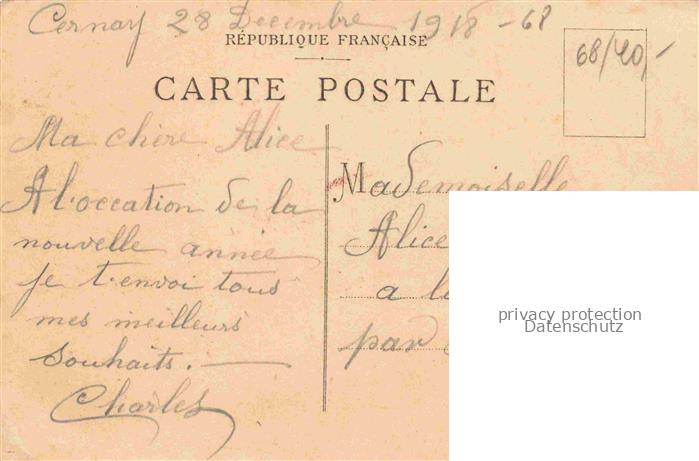 Cernay 28 Decembre 1918 - 68
RÉPUBLIQUE FRANÇAISE
CARTE POSTALE
68/40,-
Ma chère Alice
A l'occation de la
nouvelle année
je t'envoi tous
mes meilleurs
souhaits.
Charles
Mademoiselle
Alice
a la
par
privacy protection
Datenschutz